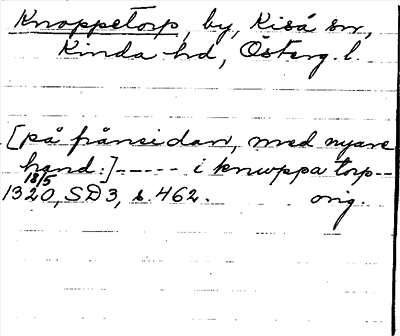 Knoppetorp, by, Kisa sn,
Kinda hd, Österg. l.
[på frånsidan, med nyare
hand:]----- i knwppa torp--
18/5
1320, SD3, s. 462. orig.